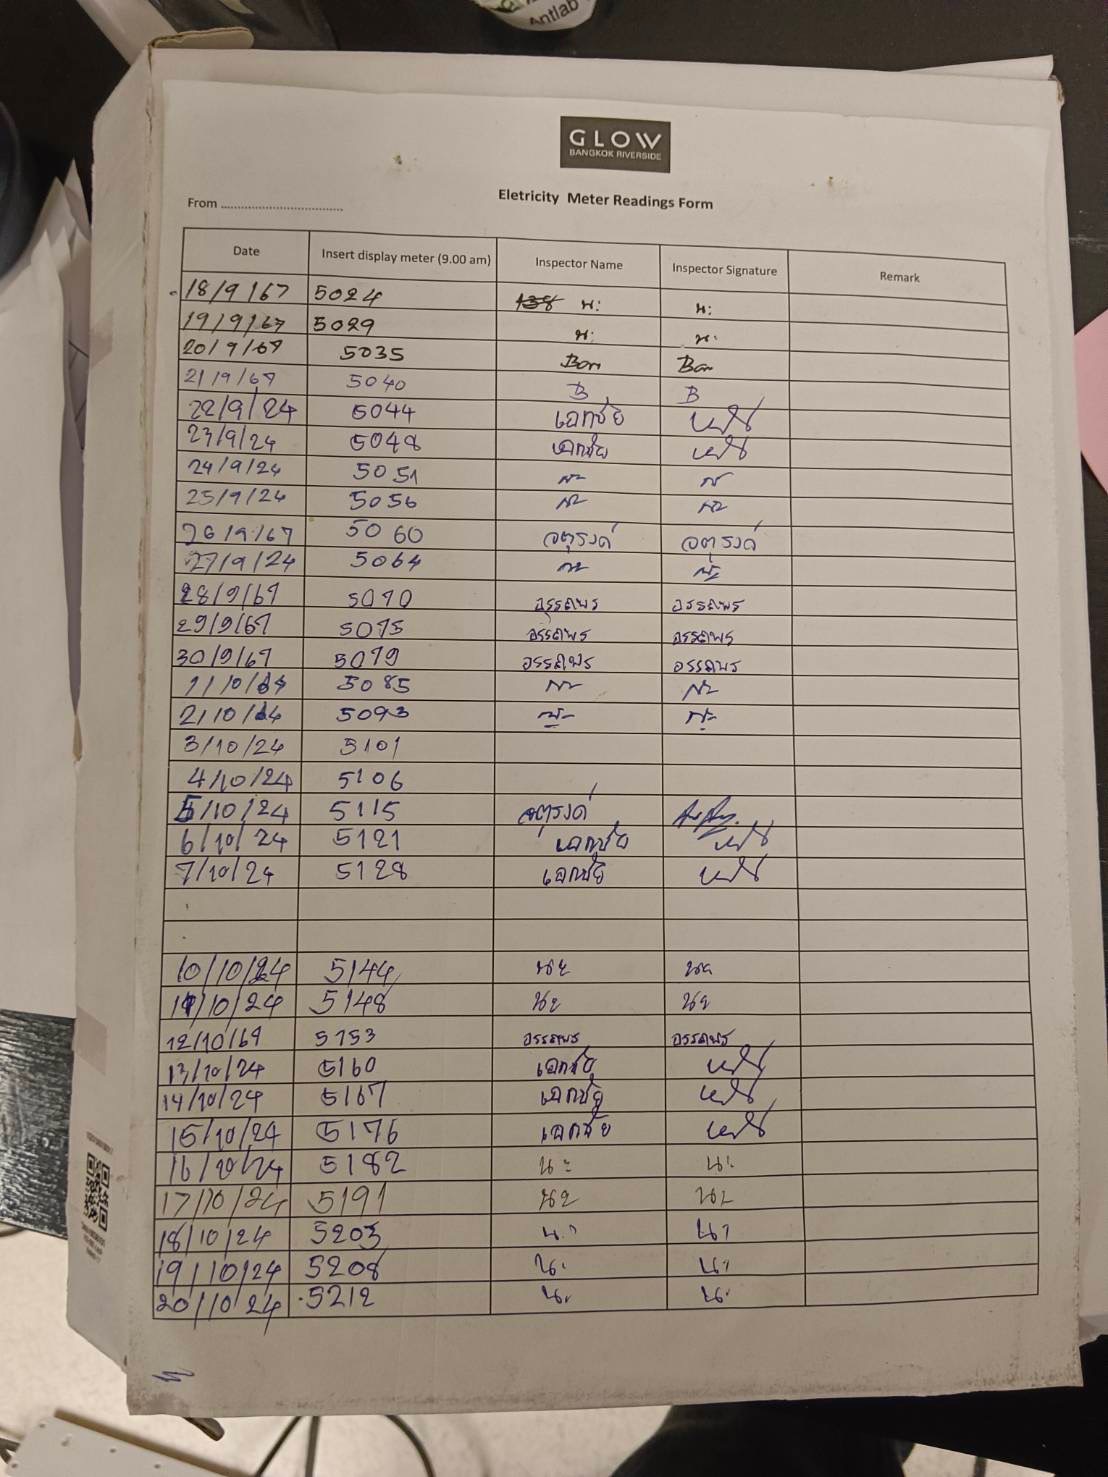 Antlab
GLOW
BANGKOK RIVERSIDE
Eletricity Meter Readings Form
From ................................
Date Insert display meter (9.00 am) Inspector Name Inspector Signature Remark
18/9/67 5024 น: น:
19/9/67 5029 น: น:
20/9/67 5035 Bon Bon
21/9/67 5040 B B
22/9/24 5044 เอกชัย
23/9/24 5048 เอกชัย
24/9/24 5051
25/9/24 5056
26/9/67 5060 จตุรงค์ จตุรงค์
27/9/24 5064
28/9/67 5070 อรรถพร อรรถพร
29/9/67 5075 อรรถพร อรรถพร
30/9/67 5079 อรรถพร อรรถพร
1/10/24 5085
2/10/24 5093
3/10/24 5101
4/10/24 5106
5/10/24 5115 จตุรงค์
6/10/24 5121 เอกชัย
7/10/24 5128 เอกชัย
10/10/24 5144 นะ นะ
11/10/24 5148 นะ นะ
12/10/67 5153 อรรถพร อรรถพร
13/10/24 5160 เอกชัย
14/10/24 5167 เอกชัย
15/10/24 5176 เอกชัย
16/10/24 5182 นะ นะ
17/10/24 5191 นะ นะ
18/10/24 5203
19/10/24 5208
20/10/24 5212